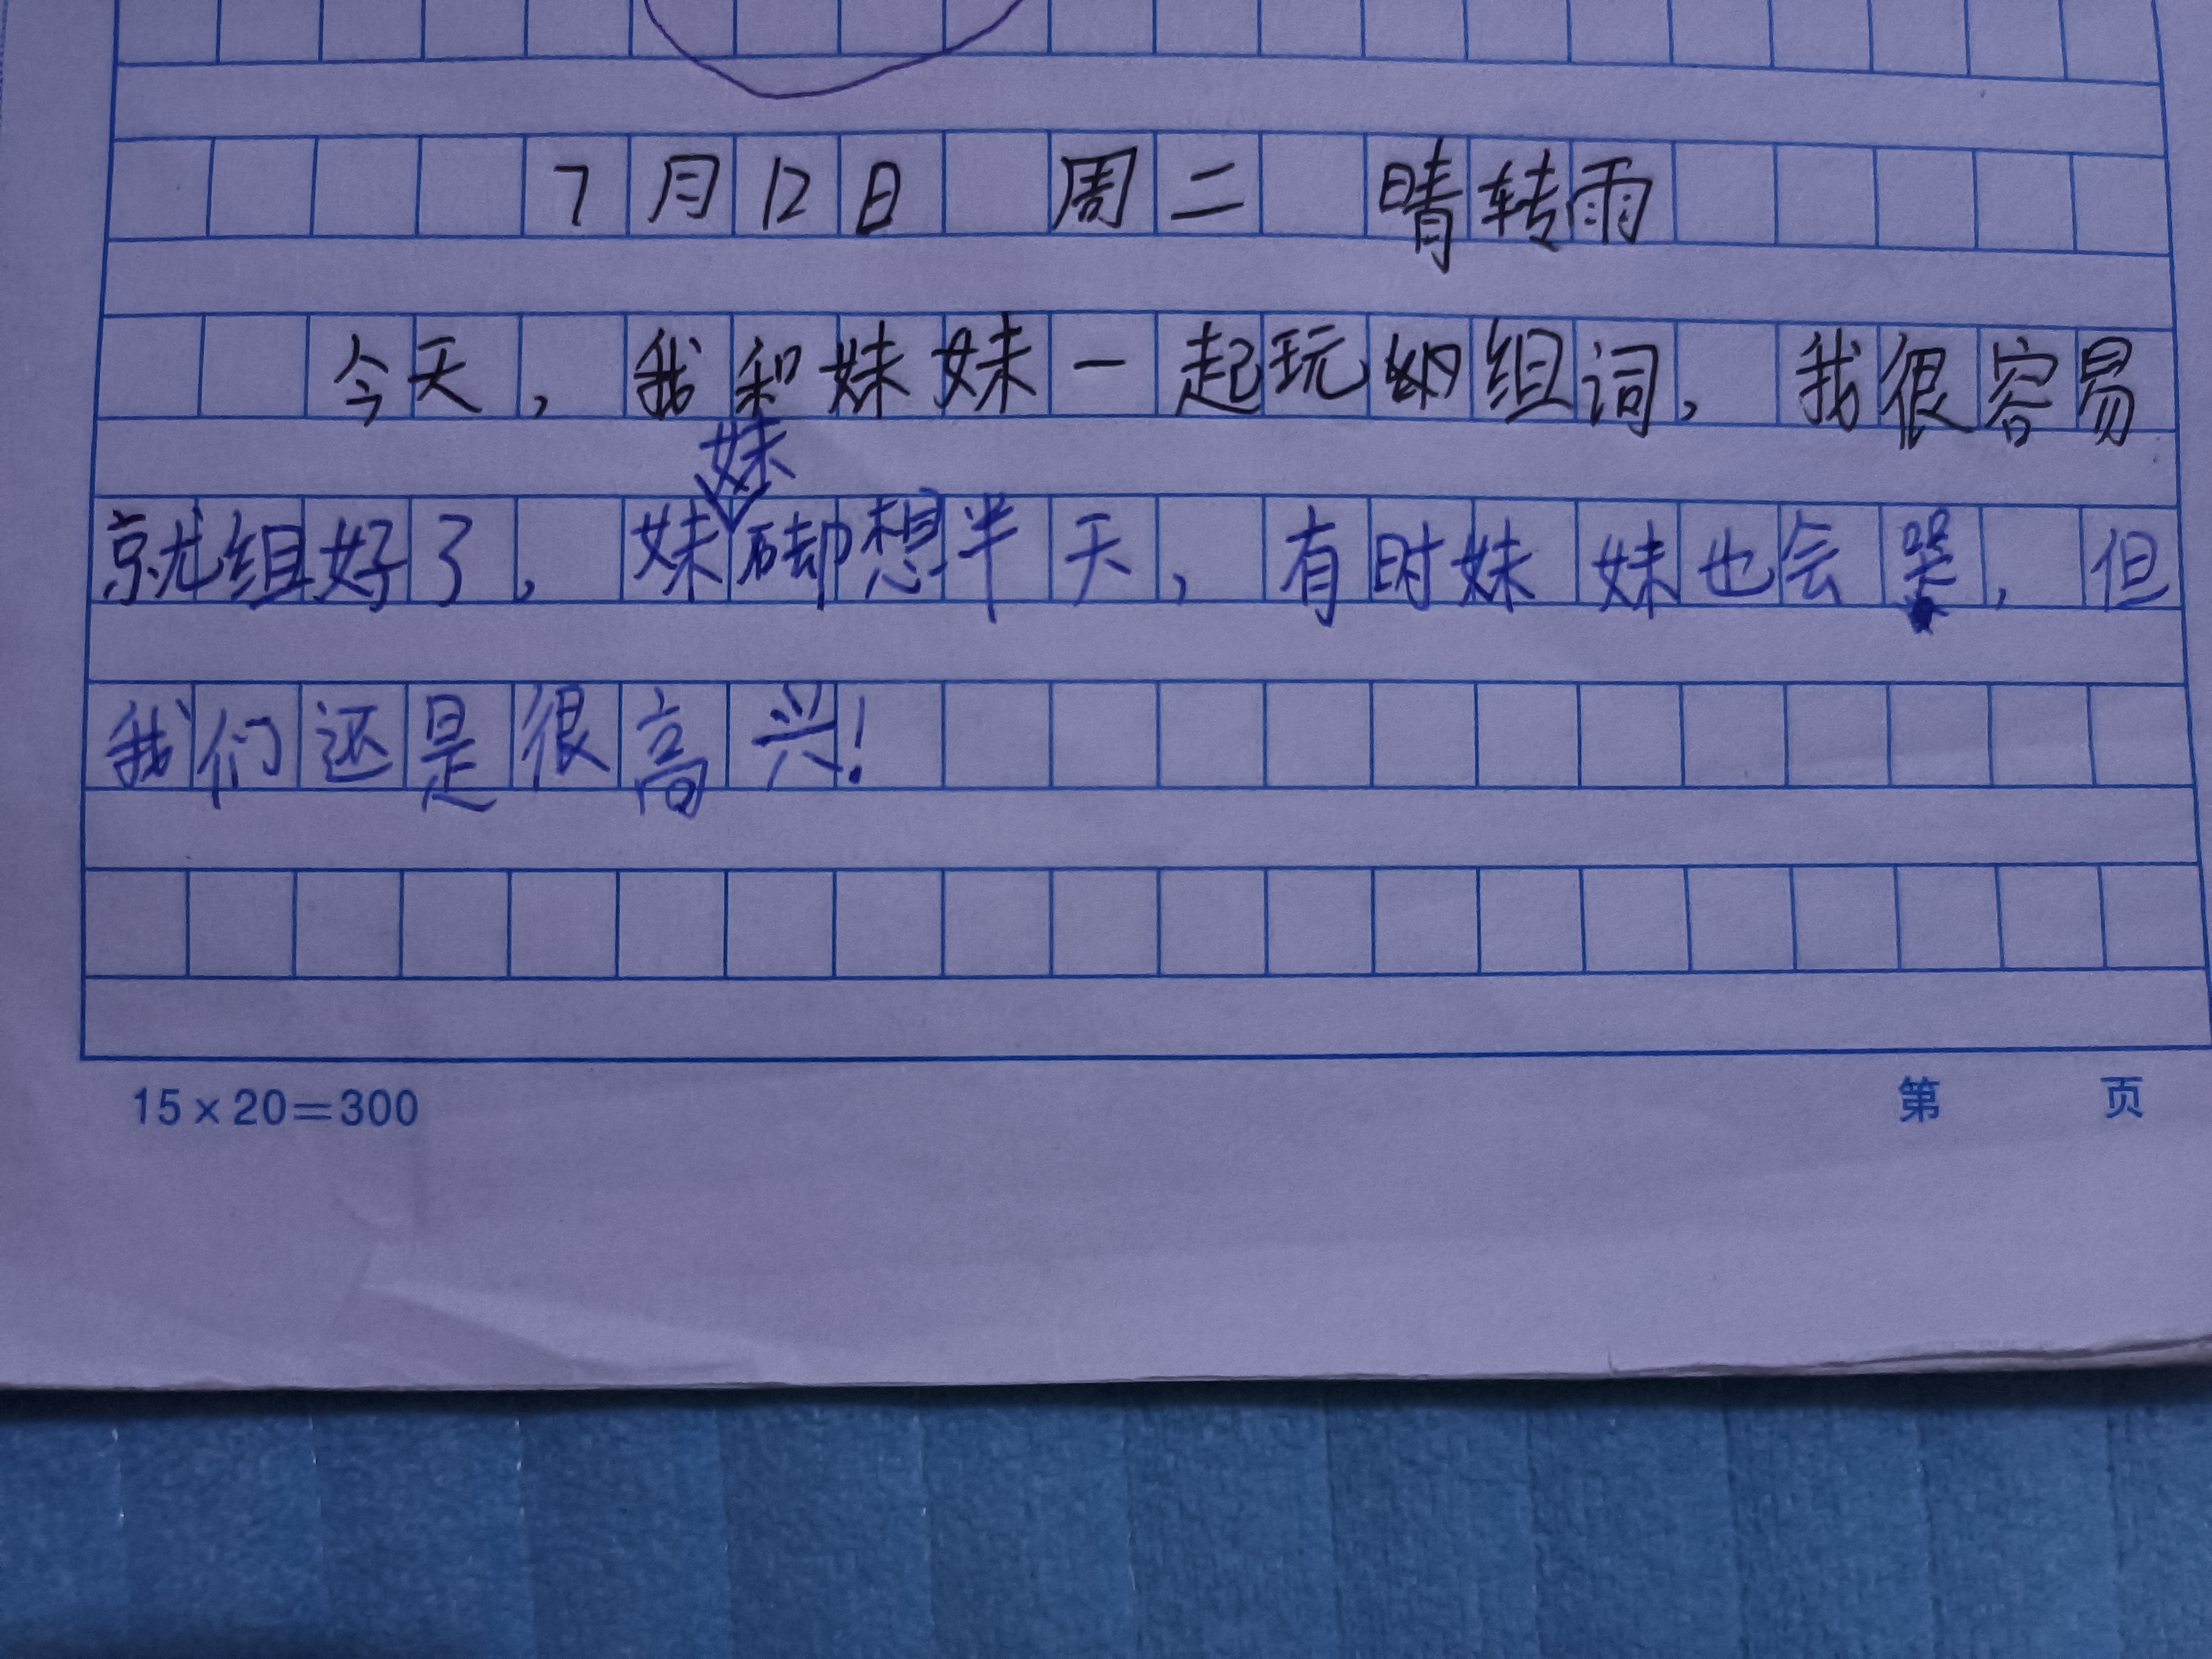 7月12日 周二 晴转雨
今天，我和妹妹一起玩组词，我很容易
妹
就组好了，妹却想半天，有时妹妹也会哭，但
我们还是很高兴！
15×20=300 第 页